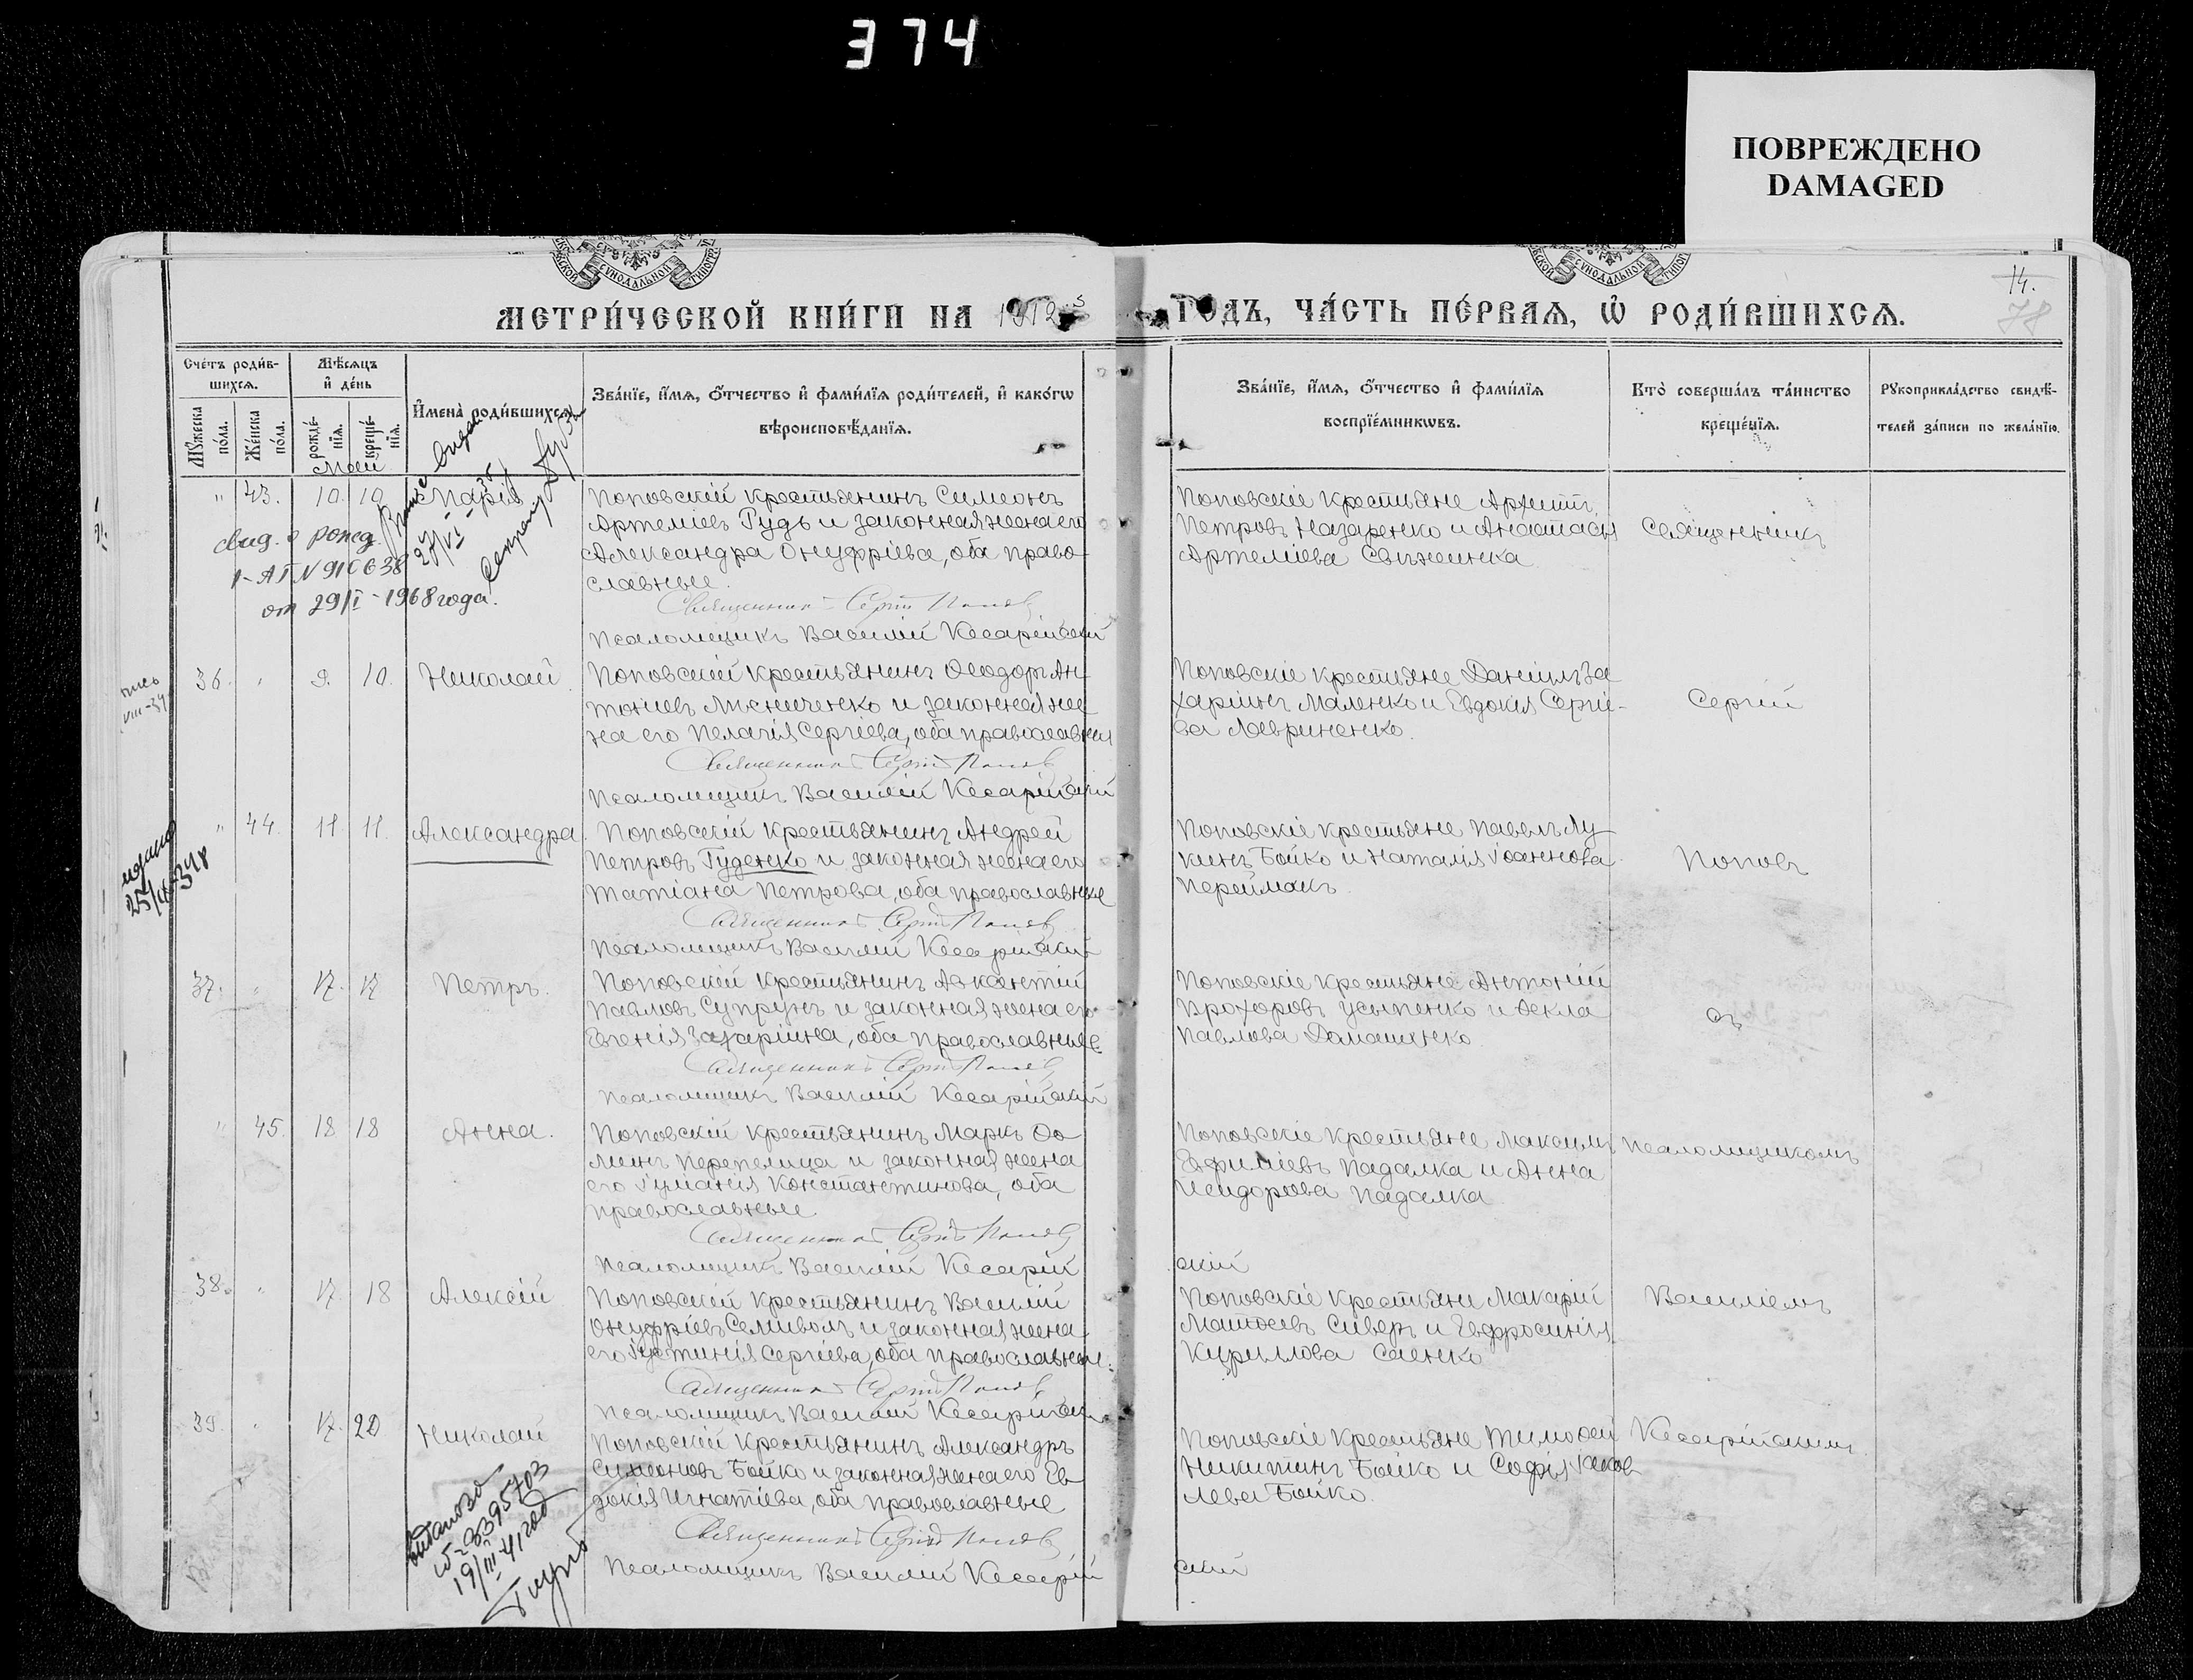 374
ПОВРЕЖДЕНО
DAMAGED
СѴНОДАЛЬНОЙ
СѴНОДАЛЬНОЙ
14.
78
МЕТРИ́ЧЕСКОЙ КНИ́ГИ НА 1912
ГОДЪ, ЧА́СТЬ ПЕ́РВАЯ, Ѿ РОДИ́ВШИХСЯ.
Сче́тъ роди́в-
шихся.
Мѣ́сяцъ
и҆ де́нь
Мꙋ́жеска по́ла.
Же́нска по́ла.
рожде́-
нїя.
креще́-
нїя.
И҆мена̀ роди́вшихся.
Зва́нїе, и҆́мя, ѻ҆́тчество и҆ фами́лїя роди́телей, и҆ како́гѡ
вѣроисповѣ́данїя.
Зва́нїе, и҆́мя, ѻ҆́тчество и҆ фами́лїя
воспрїе́мникѡвъ.
Кто̀ соверша́лъ та́инство
креще́нїя.
Рꙋкоприкла́дство свидѣ́-
телей за́писи по жела́нїю.
Май
" 43. 10 10 Марія
Поповскій крестьянинъ Симеонъ
Артеміевъ Гудь и законная жена его
Александра Онуфріева, оба право-
славные.
Священникъ Сергій Поповъ
Псаломщикъ Василій Кесарійскій
Поповскіе крестьяне
Петровъ Назаренко и Анастасія
Артеміева
Священникъ
свид. о рожд.
1-АГ № 910638
от 29/I-1968 года.
27/VI-35
36. " 9. 10. Николай.
Поповскій крестьянинъ Ѳеодоръ Ан-
тоніевъ и законная же-
на его Пелагія Сергіева, оба православные
Священникъ Сергій Поповъ
Псаломщикъ Василій Кесарійскій
Поповскіе крестьяне Даніилъ За-
харіинъ Маленко и Евдокія Сергіе-
ва Лавриненко.
Сергій
" 44. 11 11. Александра.
Поповскій крестьянинъ Андрей
Петровъ Гуденко и законная жена его
Татіана Петрова, оба православные
Священникъ Сергій Поповъ
Псаломщикъ Василій Кесарійскій
Поповскіе крестьяне Павелъ Лу-
кинъ Бойко и Наталія Іоаннова
Переймакъ
Поповъ
37. " 17. 17 Петръ.
Поповскій крестьянинъ Авксентій
Павловъ Супрунъ и законная жена его
Евгенія Захаріина, оба православные
Священникъ Сергій Поповъ
Псаломщикъ Василій Кесарійскій
Поповскіе крестьяне Антоній
Прохоровъ Усыпенко и Ѳекла
Павлова Домашенко
съ
" 45. 18 18 Анна.
Поповскій крестьянинъ Маркъ Ѳо-
минъ Перепелица и законная жена
его Іуліанія Константинова, оба
православные
Священникъ Сергій Поповъ
Псаломщикъ Василій Кесарій
скій
Поповскіе крестьяне Максимъ
Евфиміевъ Падалка и Анна
Исидорова Падалка
Псаломщикомъ
38. " 17. 18 Алексій
Поповскій крестьянинъ Василій
Онуфріевъ Семиволъ и законная жена
его Іустинія Сергіева, оба православные.
Священникъ Сергій Поповъ
Псаломщикъ Василій Кесарійскій
Поповскіе крестьяне Макарій
Матѳеевъ Сиверъ и Евфросинія
Кириллова Саенко
Василіемъ
39. " 17. 20 Николай
Поповскій крестьянинъ Александръ
Симеоновъ Бойко и законная жена его Ев-
докія Игнатіева, оба православные
Священникъ Сергій Поповъ
Псаломщикъ Василій Кесарій
скій
Поповскіе крестьяне Тимоѳей
Никитинъ Бойко и Софія Іаков
лева Бойко.
Кесарійскимъ.
19/III-41 год